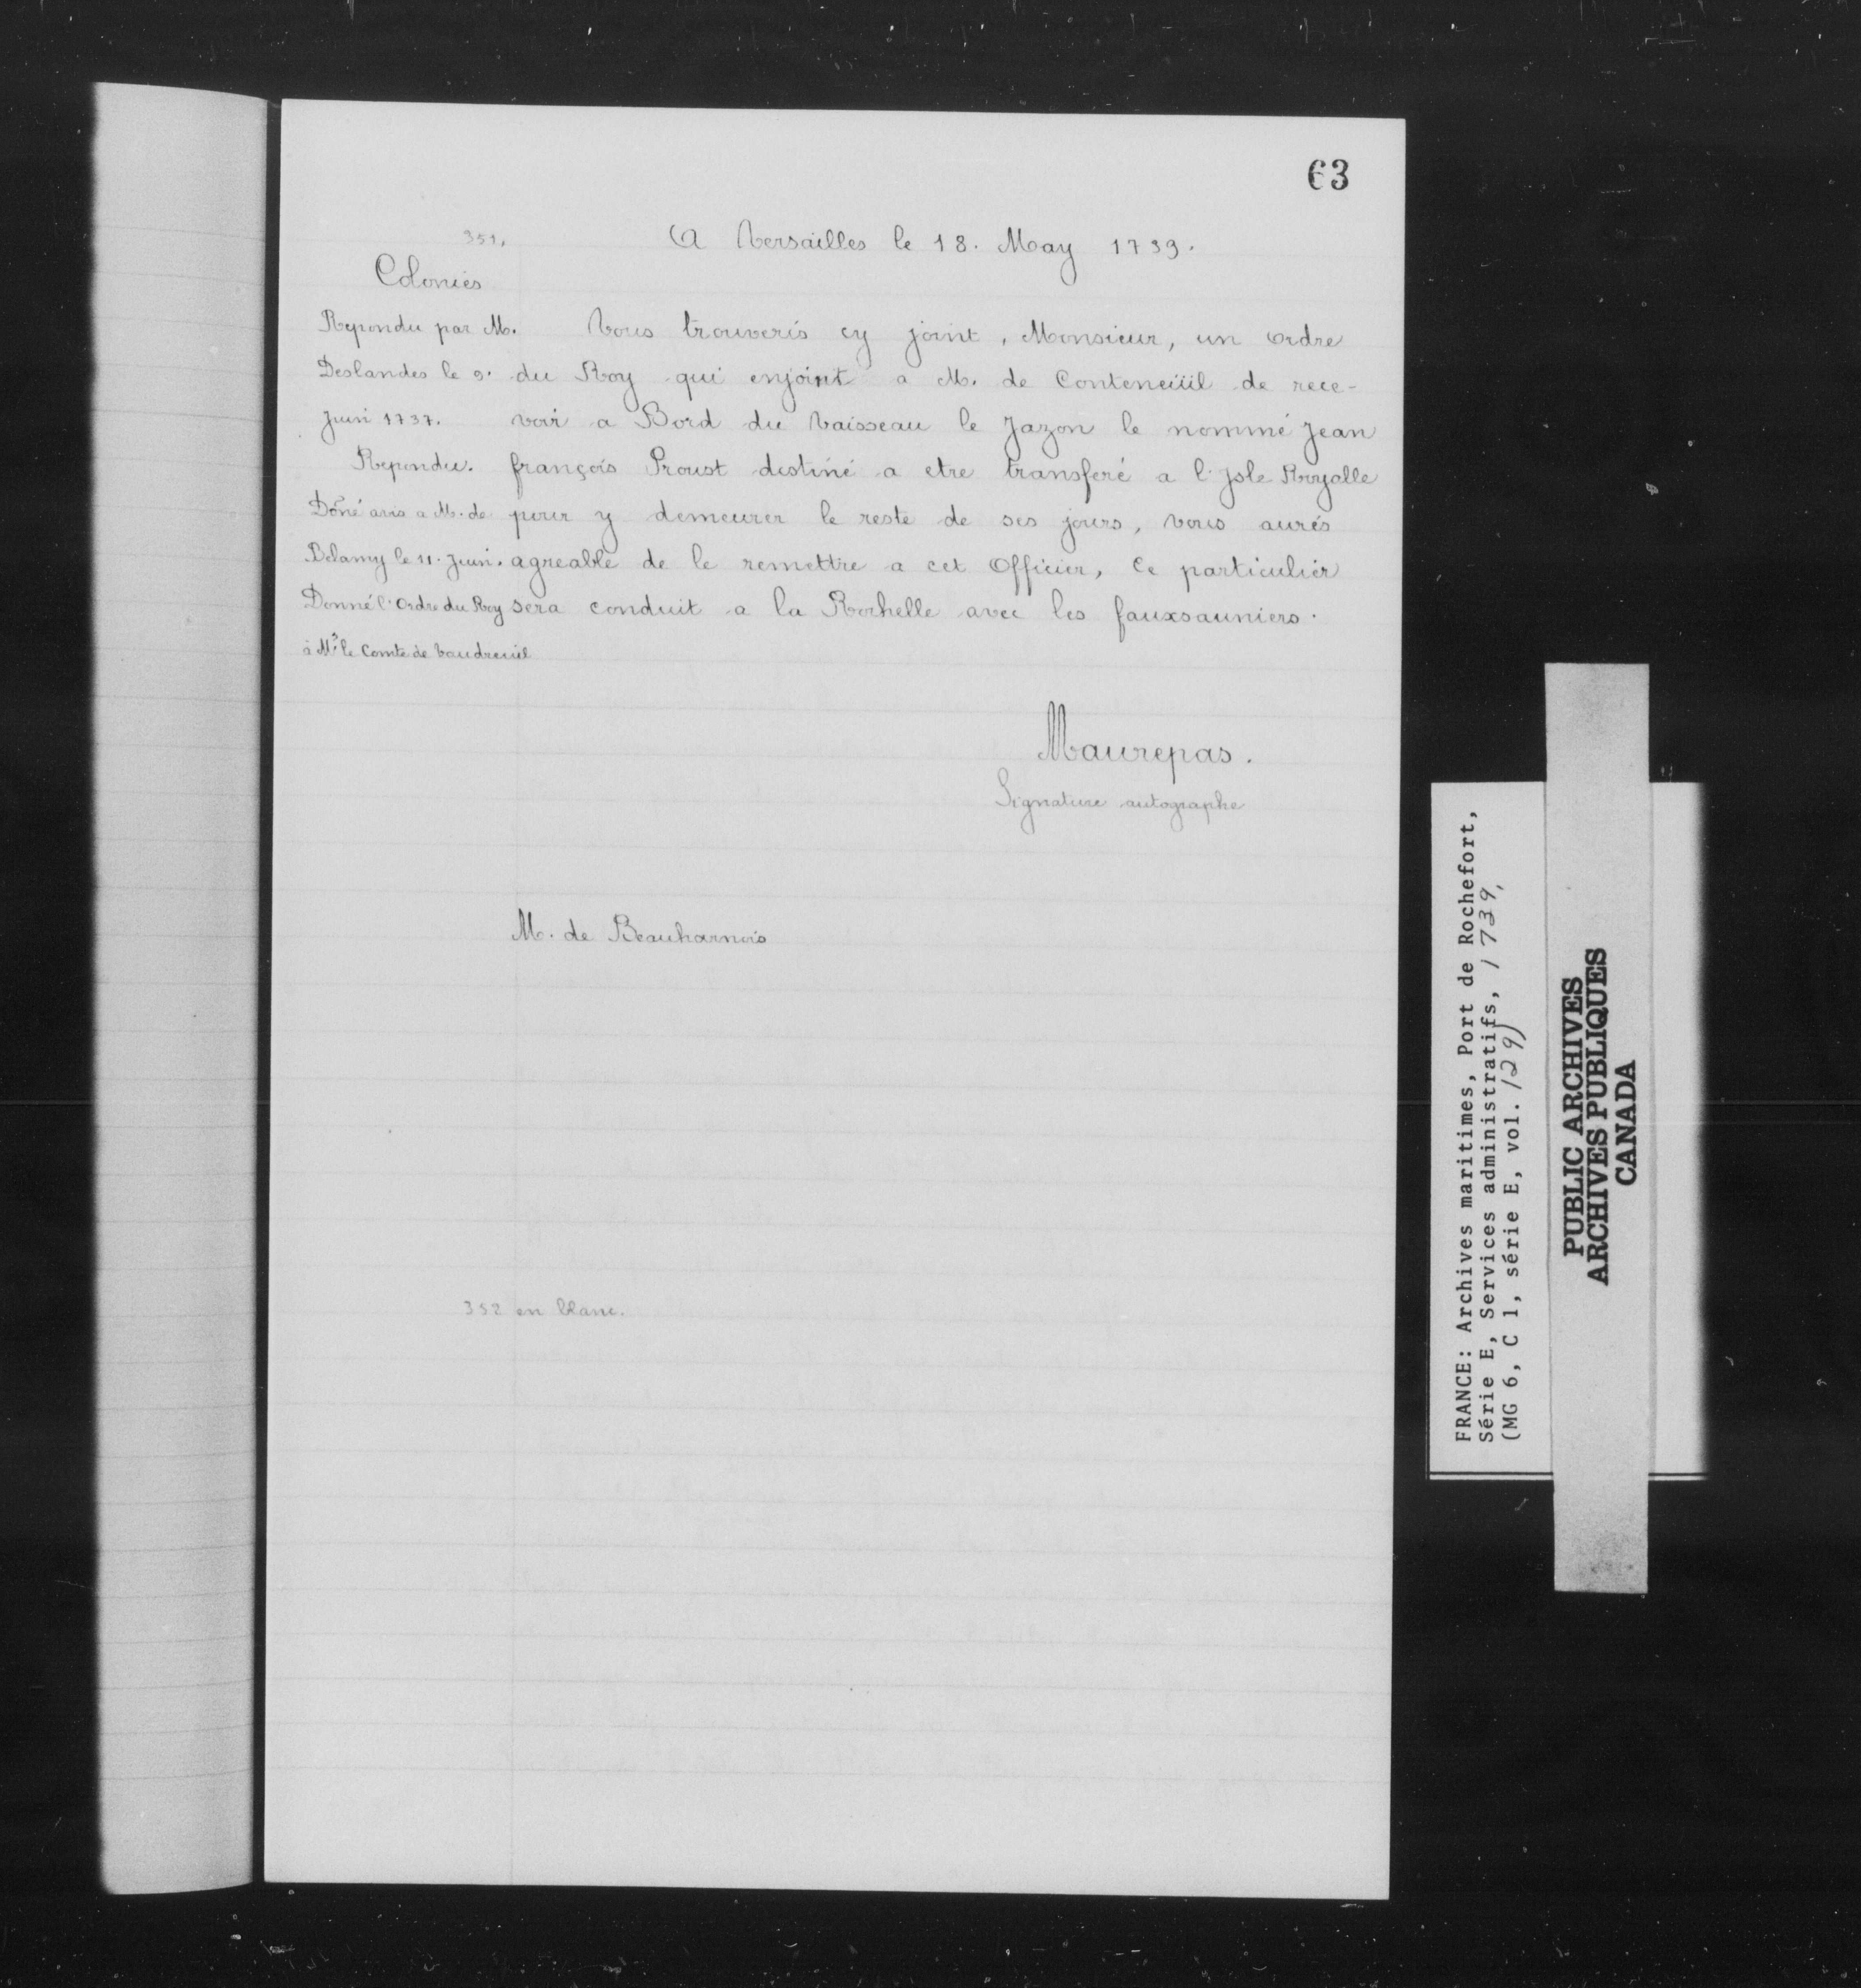 63
351.
A Versailles le 18. May 1739.
Colonies
Repondu par M.
Deslandes le 9.
Juin 1737.
Repondu.
Doñé avis a M. de
Belamy le 11. Juin.
Donné l'Ordre du Roy
à Mr le Comte de Vaudreuil
Vous trouverés cy joint, Monsieur, un ordre
du Roy qui enjoint a M. de Conteneüil de rece-
voir a Bord du Vaisseau le Jazon le nommé Jean
françois Proust destiné a etre transferé a l'Isle Royalle
pour y demeurer le reste de ses jours, vous aurés
agreable de le remettre a cet Officier, Ce particulier
sera conduit a la Rochelle avec les fauxsauniers.
Maurepas.
Signature autographe
M. de Beauharnois
352 en blanc.
FRANCE: Archives maritimes, Port de Rochefort,
Série E, Services administratifs, 1739,
(MG 6, C 1, série E, vol. 129)
PUBLIC ARCHIVES
ARCHIVES PUBLIQUES
CANADA